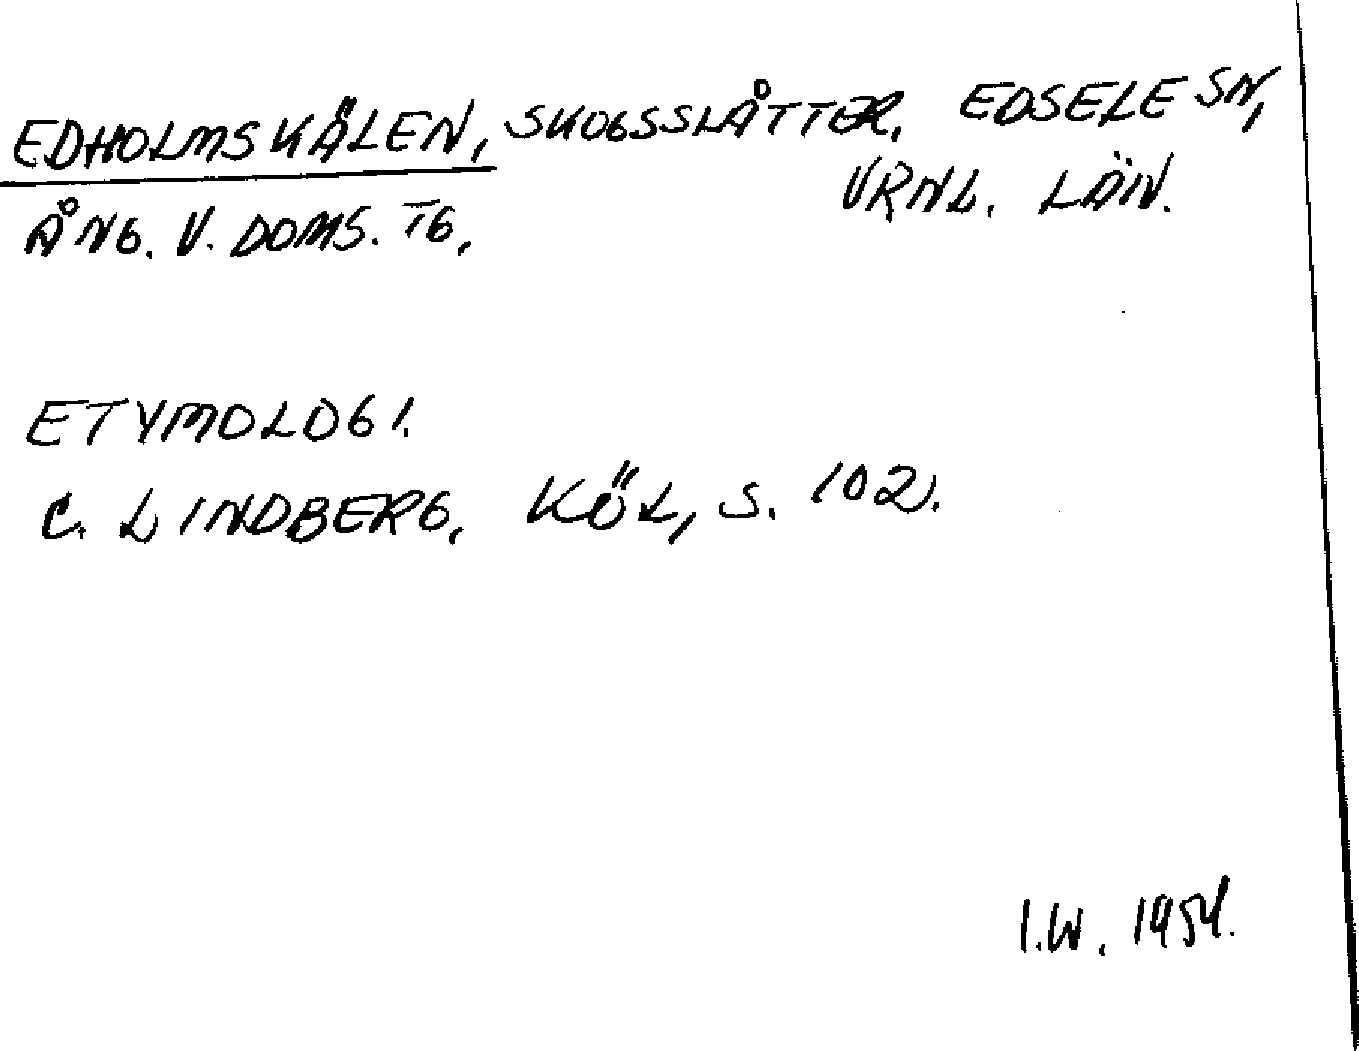 EDHOLMSKÄLEN, SKOGSSLÅTTER. EDSELE SN,
VRNL. LÄN.
ÅNG. V. DOMS. TG.
ETYMOLOGI.
C. LINDBERG. KÖL, S. 102.
I.W. 1954.